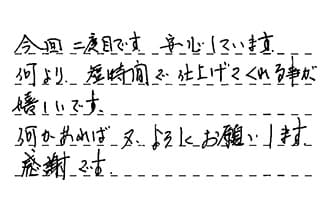 今回 二度目です 安心しています
何より 短時間で 仕上げてくれる事が
嬉しいです。
何かあれば 又 よろしくお願いします
感謝です。